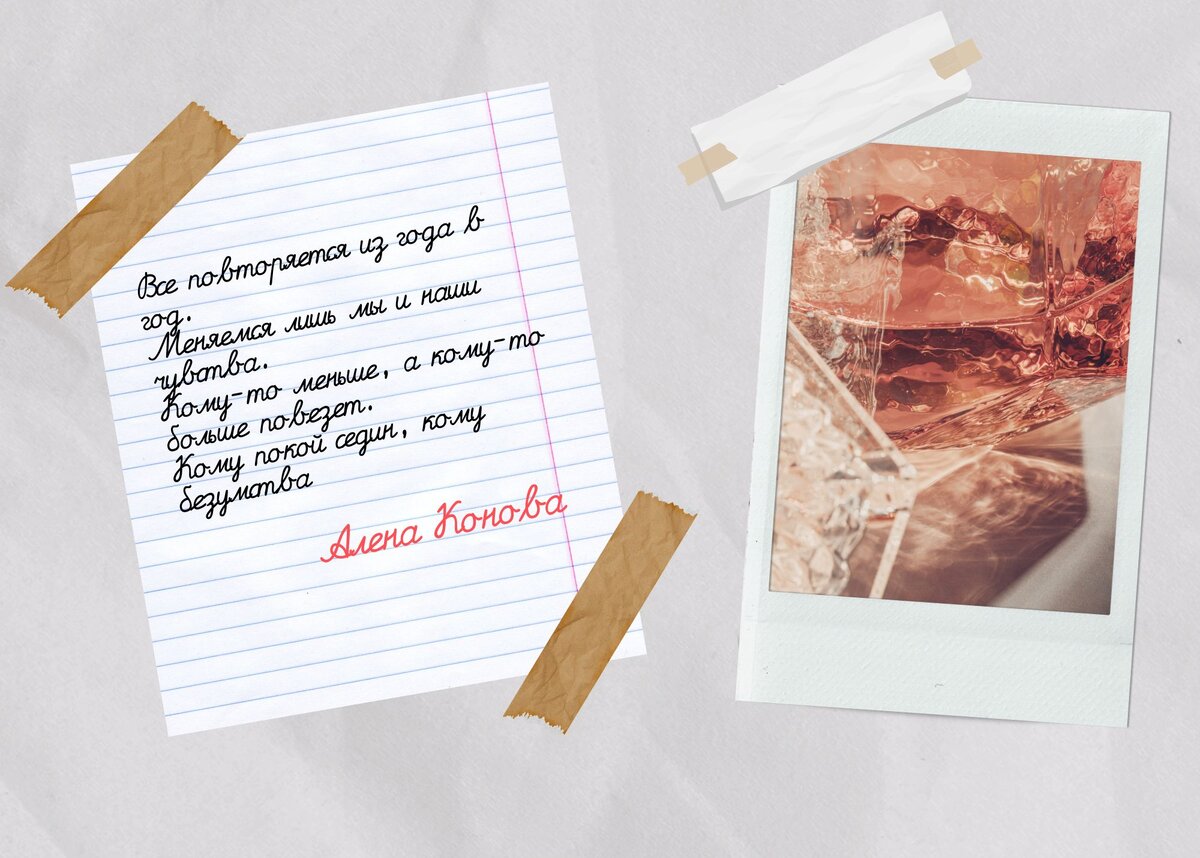 Все повторяется из года в
год.
Меняемся лишь мы и наши
чувства.
Кому-то меньше, а кому-то
больше повезет.
Кому покой седин, кому
безумства
Алена Конова